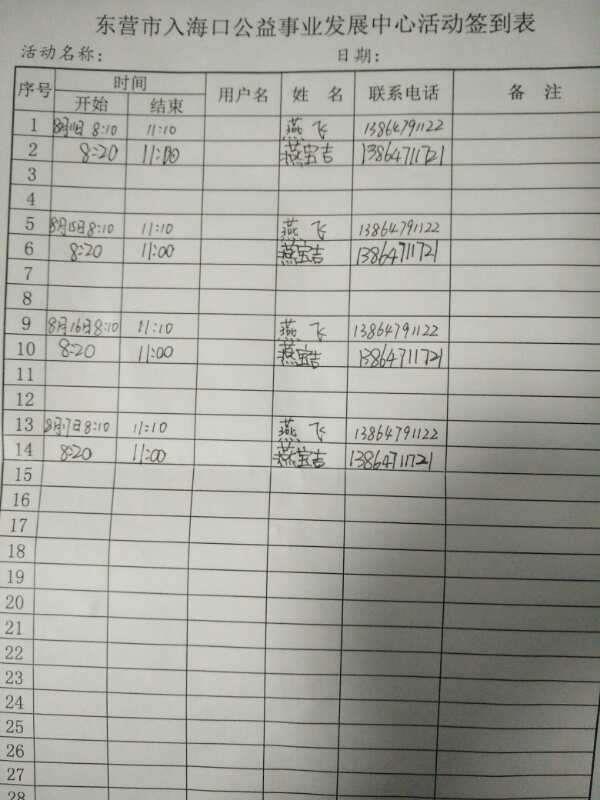 东营市入海口公益事业发展中心活动签到表
活动名称: 日期:
序号 时间 用户名 姓 名 联系电话 备 注
开始 结束
1 8月14日 8:10 11:10 燕 飞 13864791122
2 8:20 11:00 燕宝吉 13864711721
3
4
5 8月15日 8:10 11:10 燕 飞 13864791122
6 8:20 11:00 燕宝吉 13864711721
7
8
9 8月16日 8:10 11:10 燕 飞 13864791122
10 8:20 11:00 燕宝吉 13864711721
11
12
13 8月17日 8:10 11:10 燕 飞 13864791122
14 8:20 11:00 燕宝吉 13864711721
15
16
17
18
19
20
21
22
23
24
25
26
27
28